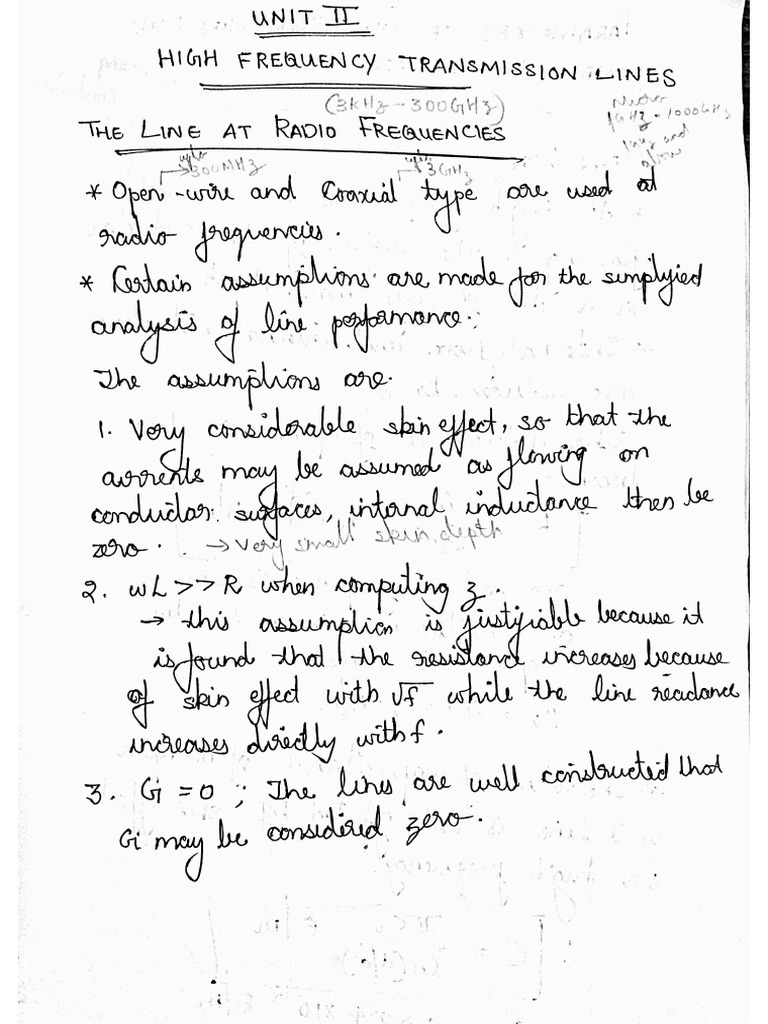 UNIT II
HIGH FREQUENCY TRANSMISSION LINES
(3KHz - 300GHz)
1GHz - 1000GHz
THE LINE AT RADIO FREQUENCIES
upto
→300MHz
upto
→3GHz
* Open-wire and Coaxial type are used at
radio frequencies.
* Certain assumptions are made for the simplyied
analysis of line performance.
The assumptions are.
1. Very considerable skin effect, so that the
currents may be assumed as flowing on
conductor surfaces, internal inductance then be
zero. → Very small skin depth
2. wL >> R when computing z.
→ this assumption is justifiable because it
is found that the resistance increases because
of skin effect with √f while the line reactance
increases directly with f.
3. G = 0 ; The lines are well constructed that
G may be considered zero.